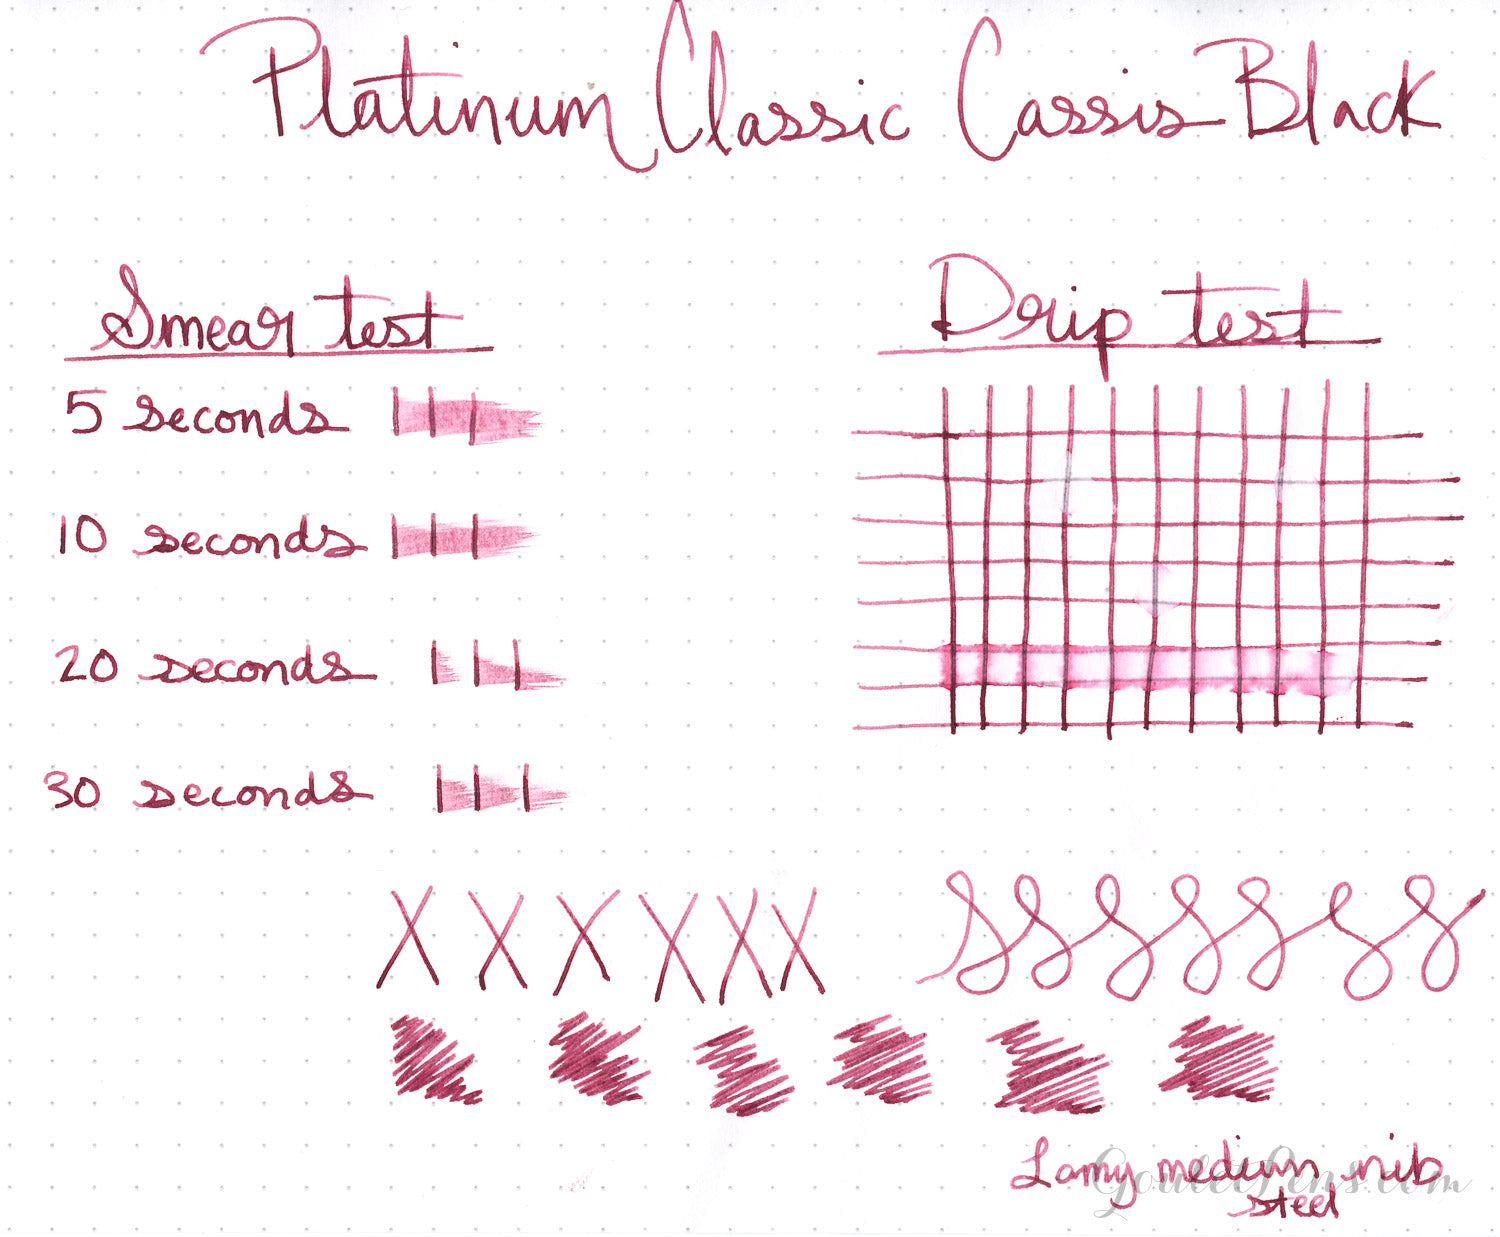 Platinum Classic Cassis Black
Smear test
Drip test
5 seconds
10 seconds
20 seconds
30 seconds
Lamy medium nib
steel
GouletPens.com